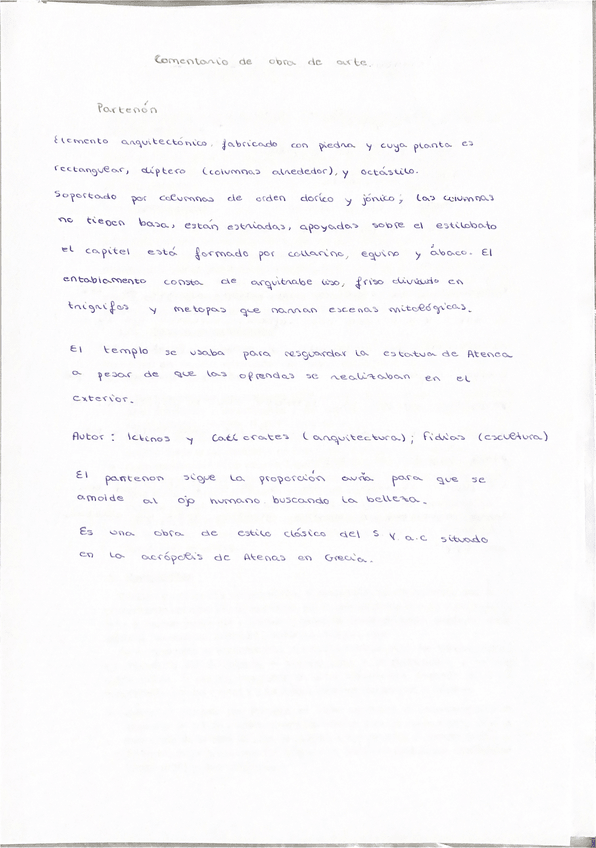 Comentario de obra de arte.
Partenón
Elemento arquitectónico. fabricado con piedra y cuya planta es
rectangular, díptero (columnas alrededor), y octástilo.
Soportado por columnas de orden dórico y jónico; las columnas
no tienen basa, están estriadas, apoyadas sobre el estilobato
el capitel está formado por collarino, equino y ábaco. El
entablamento consta de arquitrabe liso, friso dividido en
triglifos y metopas que narran escenas mitológicas.
El templo se usaba para resguardar la estatua de Atenea
a pesar de que las ofrendas se realizaban en el
exterior.
Autor: Ictinos y Calícrates (arquitectura); Fidias (escultura)
El partenon sigue la proporción para que se
amolde al ojo humano buscando la belleza.
Es una obra de estilo clásico del S V a.c situado
en la acrópolis de Atenas en Grecia.